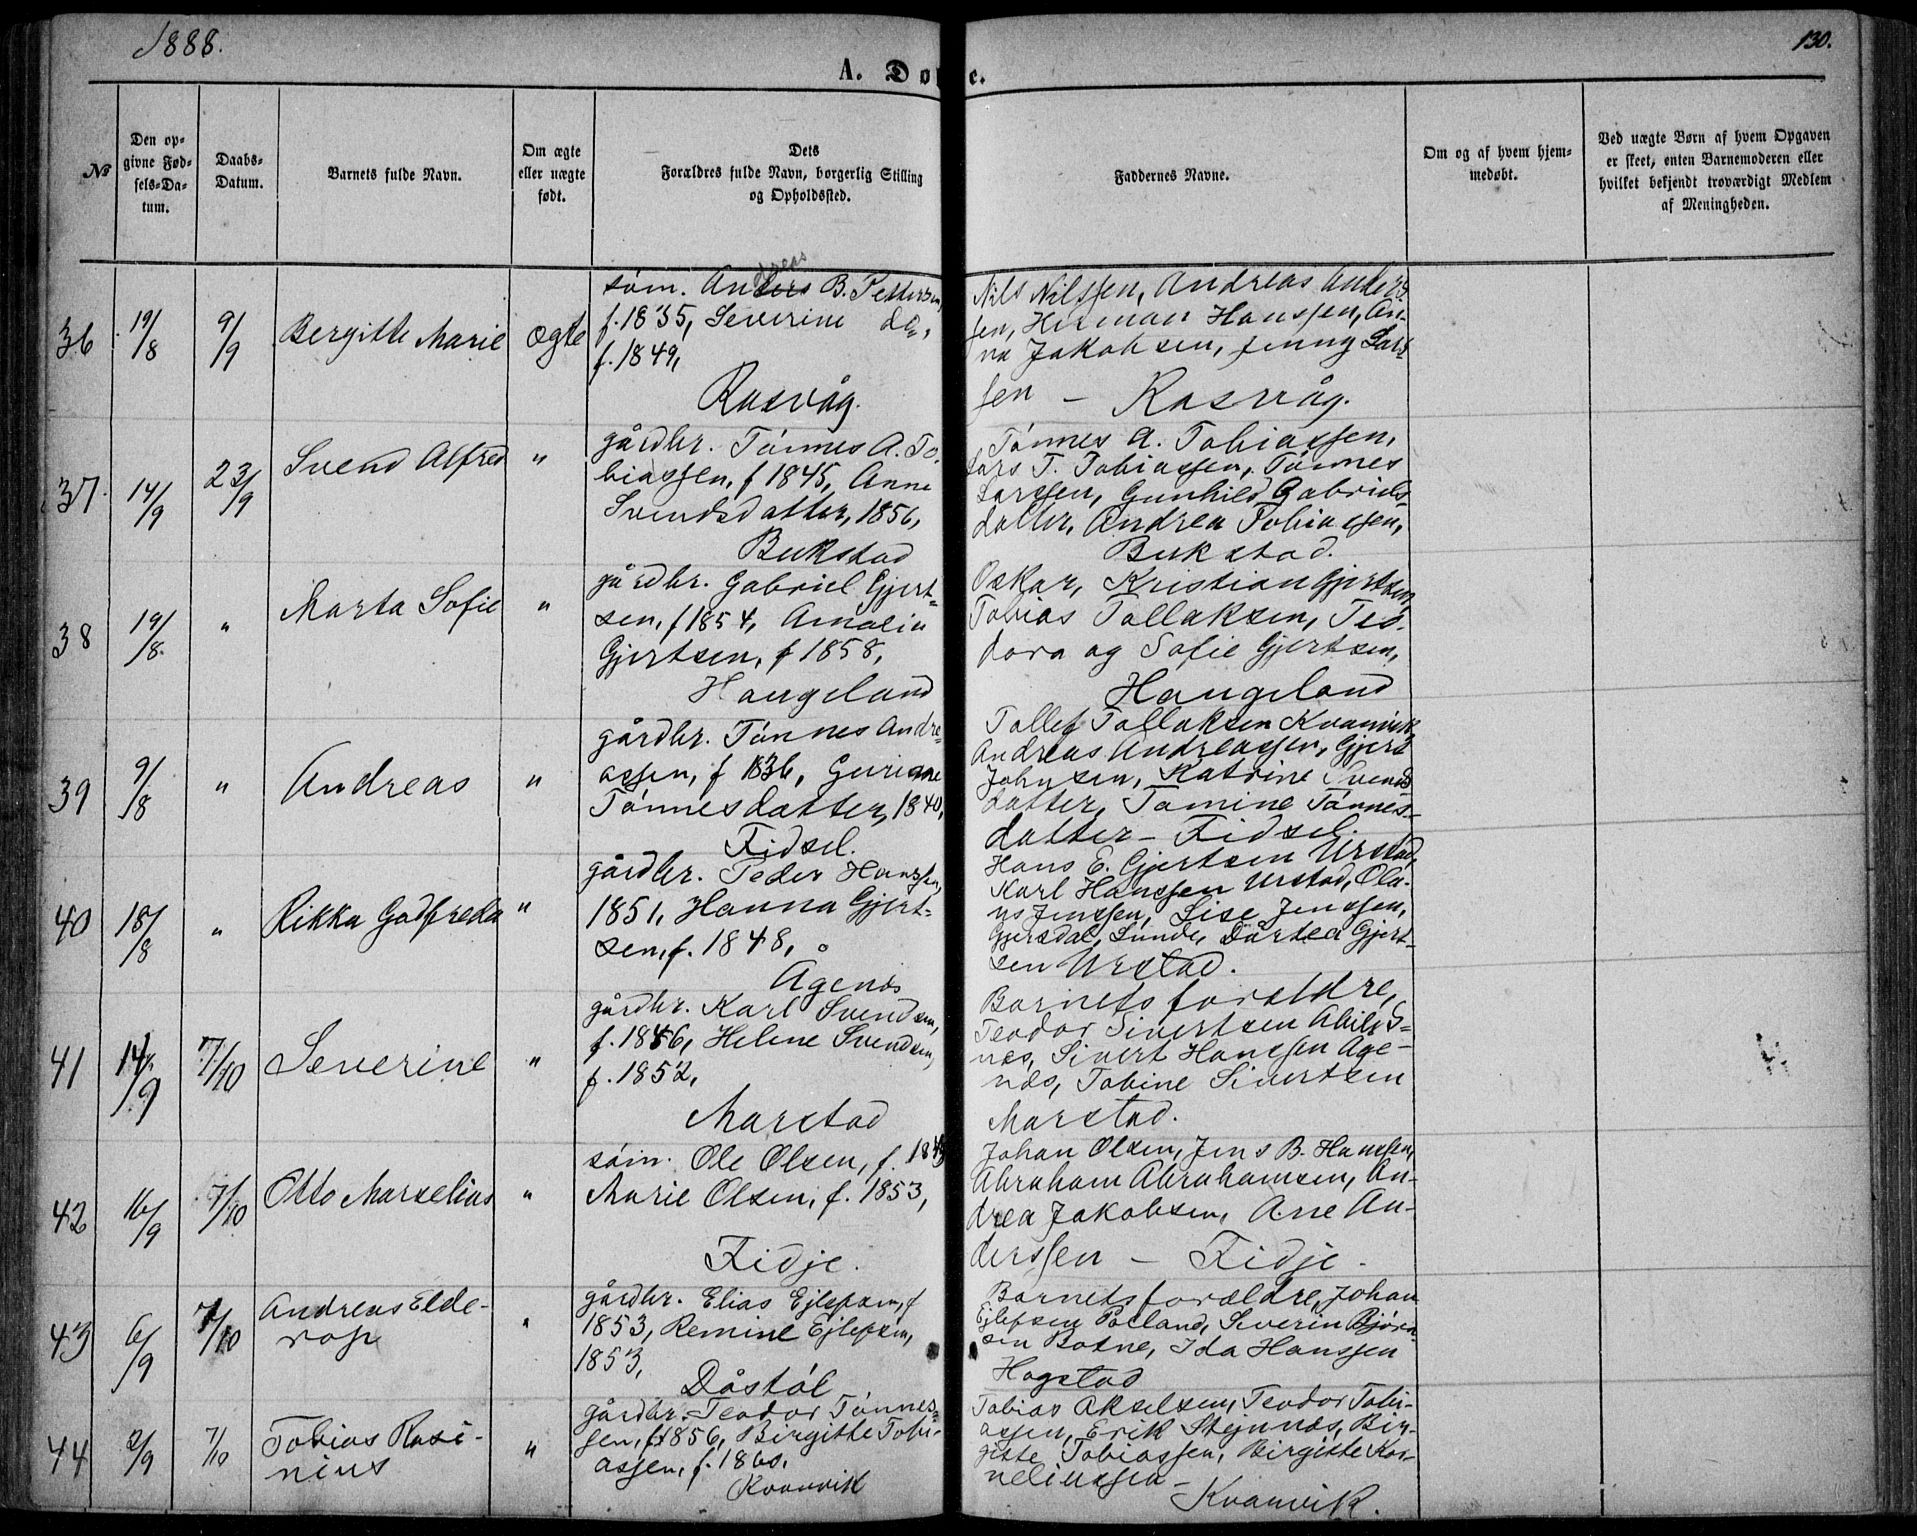 1888.
130.
A. Do e.
No
Den op-
givne Fød-
sels-Da-
tum.
Daabs-
Datum.
Barnets fulde Navn.
Om ægte
eller uægte
født.
Dets
Forældres fulde Navn, borgerlig Stilling
og Opholdssted.
Faddernes Navne.
Om og af hvem hjem-
medøbt.
Ved uægte Børn af hvem Opgaven
er skeet, enten Barnemoderen eller
hvilket bekjendt troværdigt Medlem
af Menigheden.
36
19/8
9/9
Bergitte Marie
Ægte
dreas
søm. Anders B. Pettersen,
f. 1835, Severine do,
f. 1849,
Rasvåg.
Nils Nilssen, Andreas Anders-
sen, Herman Hanssen, An-
na Jakobsen, Jenny Lars-
sen — Rasvåg.
37.
14/9
23/9
Svend Alfred
"
gårdbr. Tønnes A. To-
biassen, f 1845, Anne
Svendsdatter, 1856,
Bukstad
Tønnes A. Tobiassen,
Lars T. Tobiassen, Tønnes
Larssen, Gunhild Gabriels-
datter, Andrea Tobiassen,
Bukstad.
38
19/8.
"
Marta Sofie
"
gårdbr. Gabriel Gjert-
sen, f 1854, Amalia
Gjertsen, f 1858,
Haugeland
Oskar, Kristian Gjertsen,
Tobias Tollaksen, Teo-
dora og Sofie Gjertsen,
Haugeland
39
9/8
"
Andreas
"
gårdbr. Tønnes Andre-
assen, f 1836, Guriane
Tønnesdatter, 1840,
Fidsel.
Tollef Tollaksen Kvanvik,
Andreas Andreassen, Gjert
Johnsen, Katrine Svends-
datter, Tomine Tønnes-
datter — Fidsel.
40
18/8
"
Rikka Godfreda
"
gårdbr. Peder Hanssen,
1851, Hanna Gjert-
sen, f. 1848,
Agenes
Hans E. Gjertsen Urstad,
Karl Hanssen Urstad, Ola-
us Jenssen, Lise Jenssen,
Gjersdal, Sunde, Dårtea Gjert-
sen Urstad.
41
14/9
7/10
Severine
"
gårdbr. Karl Svendsen,
f. 1846, Helene Svendsen,
f. 1852,
Marstad
Barnets forældre,
Teodor Sivertsen Abils-
nes, Sivert Hanssen Age-
nes, Tobine Sivertsen
Marstad.
42
16/9
7/10
Otto Marselius
"
søm. Ole Olsen, f.
Marie Olsen, f. 1853,
Fidje.
Johan Olsen, Jens B. Hanssen,
Abraham Abrahamsen, An-
drea Jakobsen, Ane An-
derssen — Fidje.
43
6/9
7/10
Andreas Elde-
"
gårdbr. Elias Ejlefsen, f
1853, Remine Ejlefsen,
1853,
Dåstøl
Barnets forældre, Johan
Ejlefsen Polland, Severin Bjørn-
sen Botne, Ida Hanssen
Hogstad
44
2/9
7/10
Tobias Rasi-
nius
"
gårdbr. Teodor Tønnes-
sen, f. 1856, Birgitte Tobi-
assen, f. 1860.
Kvanvik
Tobias Akselsen, Teodor Tobi-
assen, Erik Stejnnes, Bir-
gitte Tobiassen, Birgitte Kor-
neliussen —
Kvanvik.